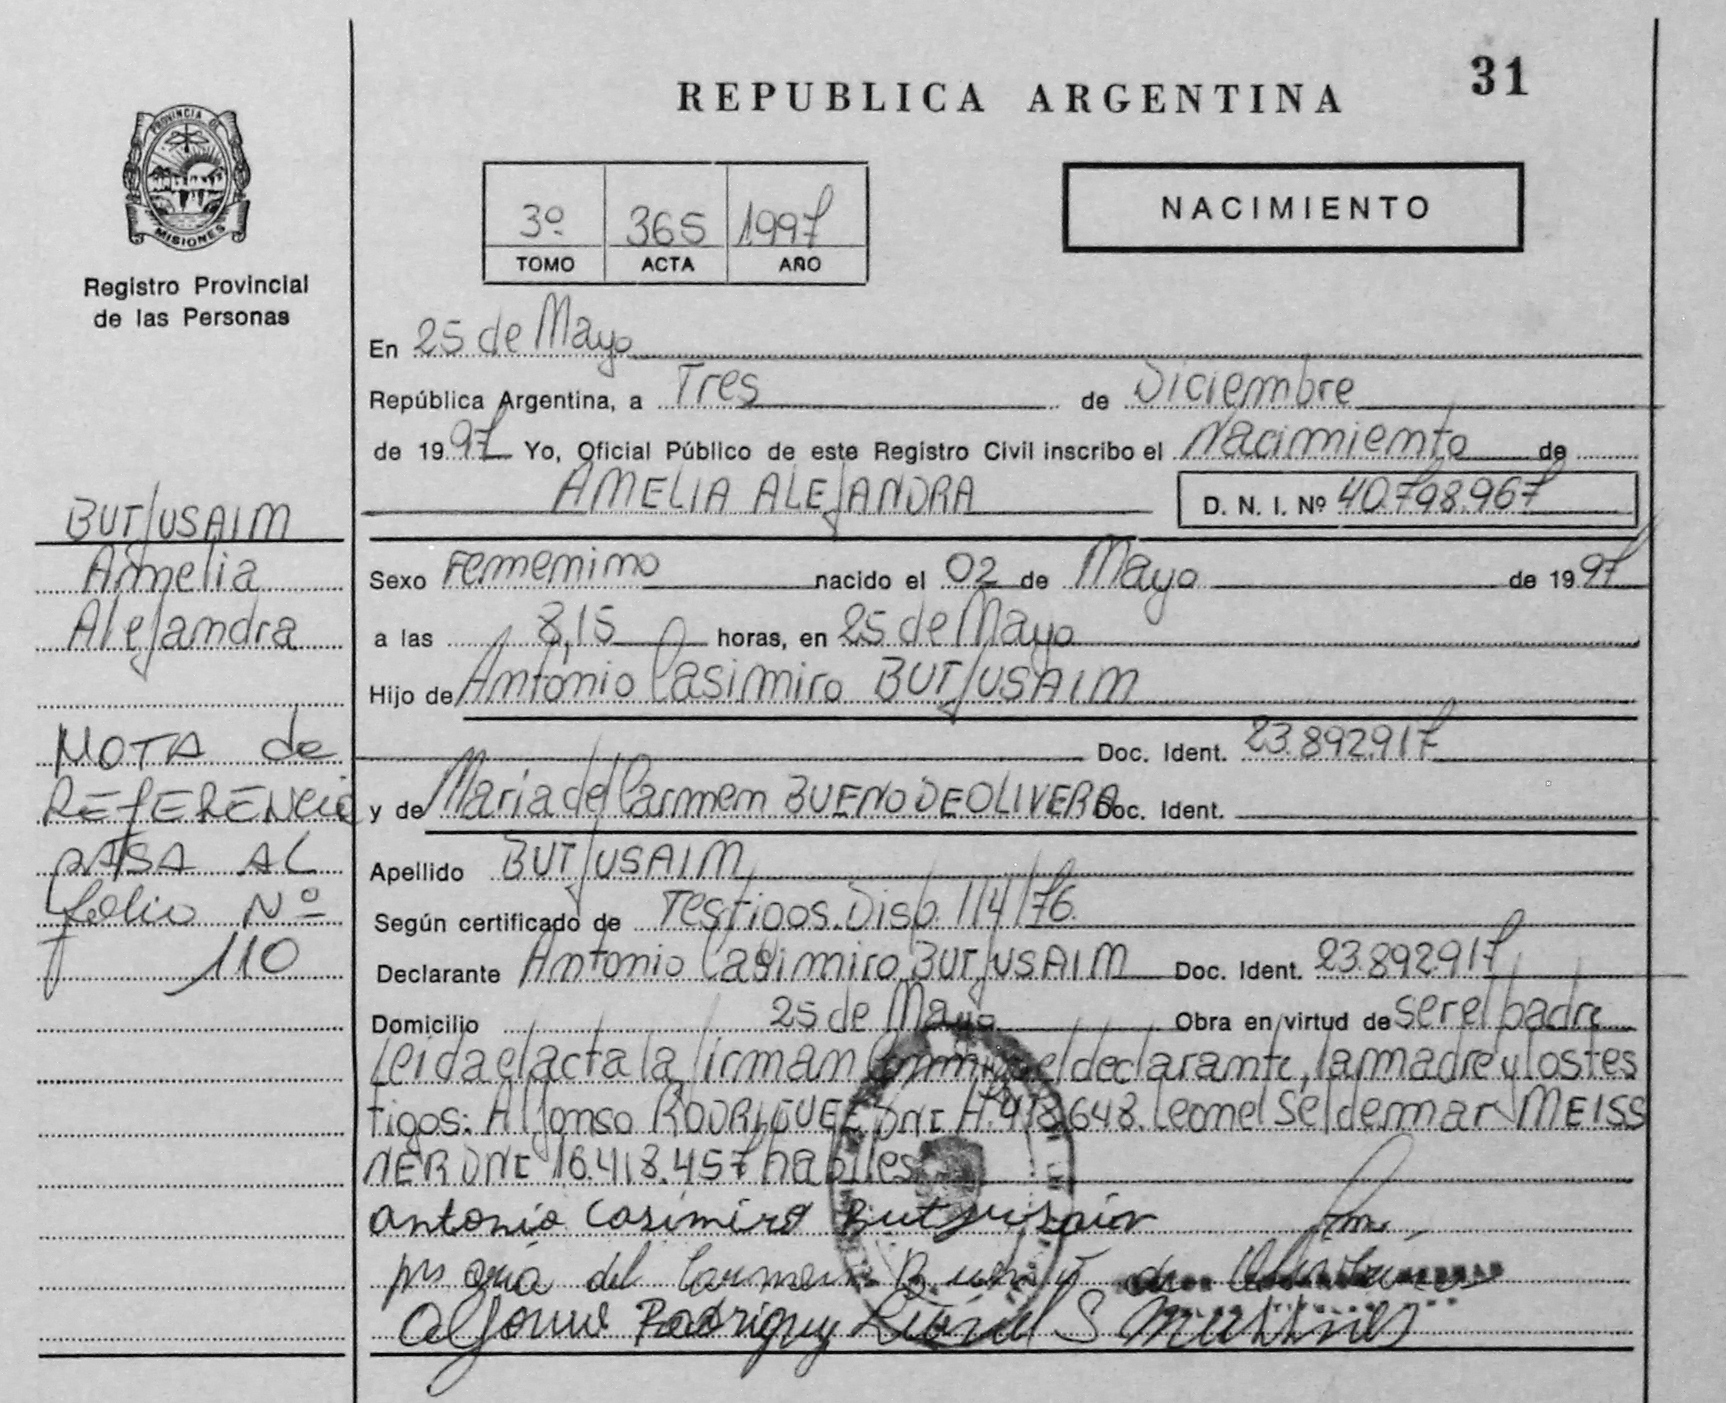 REPUBLICA ARGENTINA
31
PROVINCIA DE
MISIONES
Registro Provincial
de las Personas
3º 365 1997
TOMO ACTA AÑO
NACIMIENTO
En 25 de Mayo
República Argentina, a Tres de Diciembre
de 1997 Yo, Oficial Público de este Registro Civil inscribo el Nacimiento de
AMELIA ALEJANDRA D. N. I. Nº 40.798.967
Sexo Femenino nacido el 02 de Mayo de 1997
a las 8,15 horas, en 25 de Mayo
Hijo de Antonio Casimiro BUTJUSAIM
Doc. Ident. 23.892.917
y de Maria del Carmen BUENO DE OLIVERA Doc. Ident.
Apellido BUTJUSAIM
Según certificado de Testigos. Disp. 114/76.
Declarante Antonio Casimiro BUTJUSAIM Doc. Ident. 23.892.917
Domicilio 25 de Mayo Obra en virtud de ser el padre
Leida el acta la firman conmigo el declarante, la madre y los tes
tigos: Alfonso RODRIGUEZ DNI 418.648. Leonel Seldemar MEISS
NER DNI 16.418.457 habiles
antonio Casimiro Butjusaim
maria del Carmen Bueno de
Alfonso Rodriguez Leonel S Meissner
BUTJUSAIM
Amelia
Alejandra
NOTA de
REFERENCIA
PASA AL
folio Nº
110